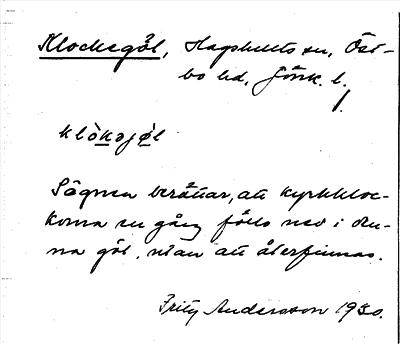 Klockegöl, Hagshults sn, Öst-
bo hd, Jönk. l.
klòkəjø̀l
Sägnen berättar, att kyrkkloc-
korna en gång fälts ned i den-
na göl, utan att återfinnas.
Fritz Andersson 1930.